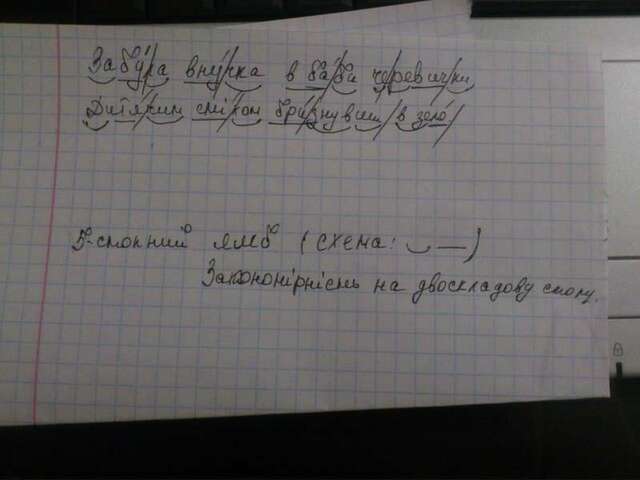 Забула внучка в баби черевички
Дитячим сміхом бризнувши в зело
5-стопний ямб (схема: ◡ —)
Закономірність на двоскладову стопу.